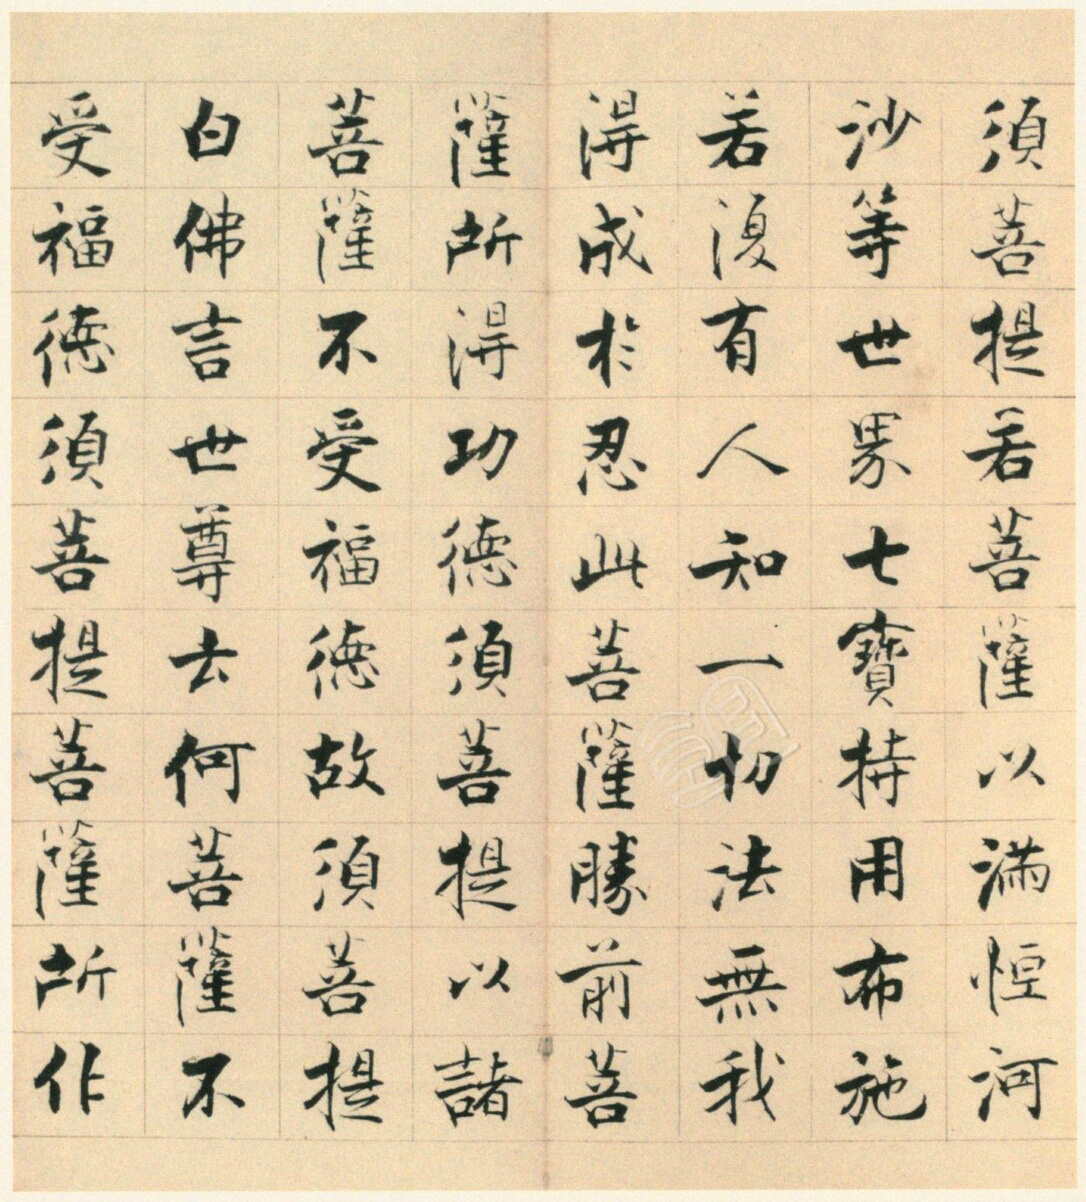 須菩提若菩薩以滿恒河
沙等世界七寶持用布施
若復有人知一切法無我
得成於忍此菩薩勝前菩
薩所得功德須菩提以諸
菩薩不受福德故須菩提
白佛言世尊云何菩薩不
受福德須菩提菩薩所作